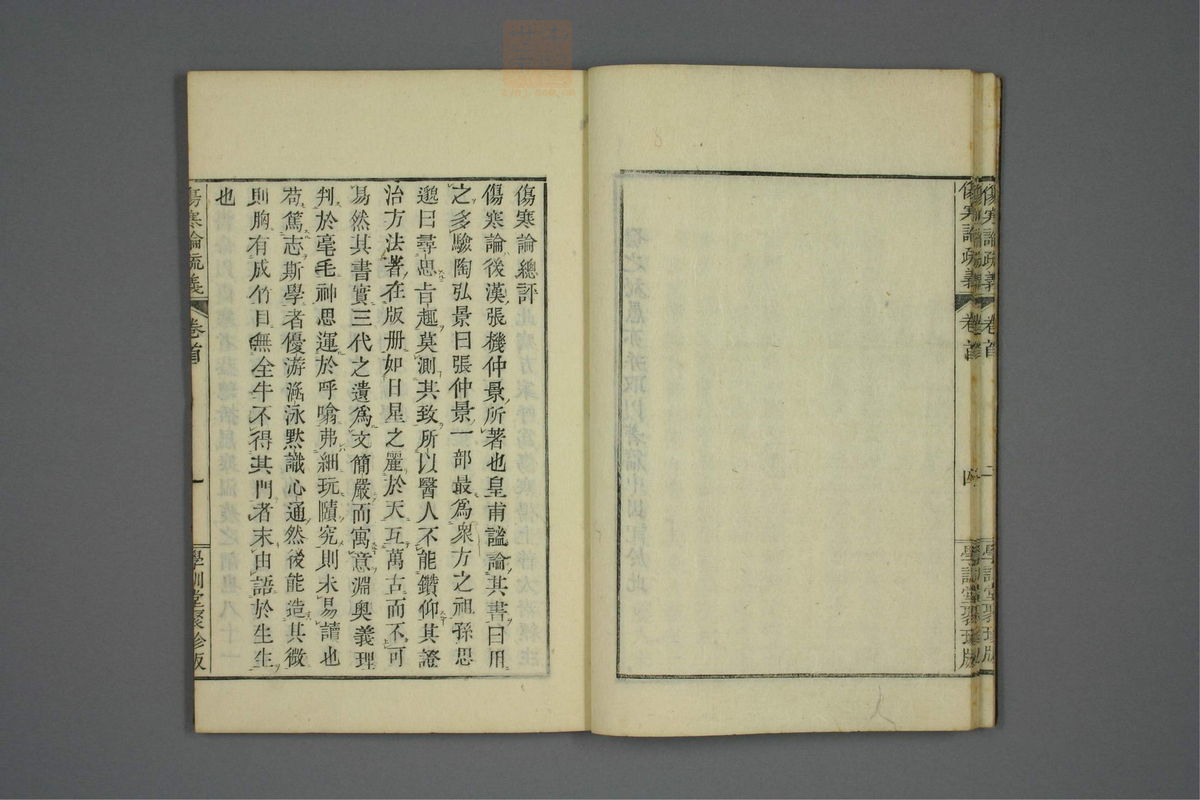 傷寒論疏義
卷首
二
學訓堂聚珍版
傷寒論疏義
卷首
四
學訓堂聚珍版
傷寒論總評
傷寒論後漢張機仲景所著也皇甫謐論其書曰用
之多驗陶弘景曰張仲景一部最爲衆方之祖孫思
邈曰尋思旨趣莫測其致所以醫人不能鑽仰其證
治方法著在版册如日星之麗於天互萬古而不可
易然其書實三代之遺爲文簡嚴而寓意淵奧義理
判於毫毛神思運於呼噏弗細玩賾究則未易讀也
苟篤志斯學者優游涵泳默識心通然後能造其微
則胸有成竹目無全牛不得其門者末由語於生生
也
傷寒論疏義
卷首
一
學訓堂聚珍版